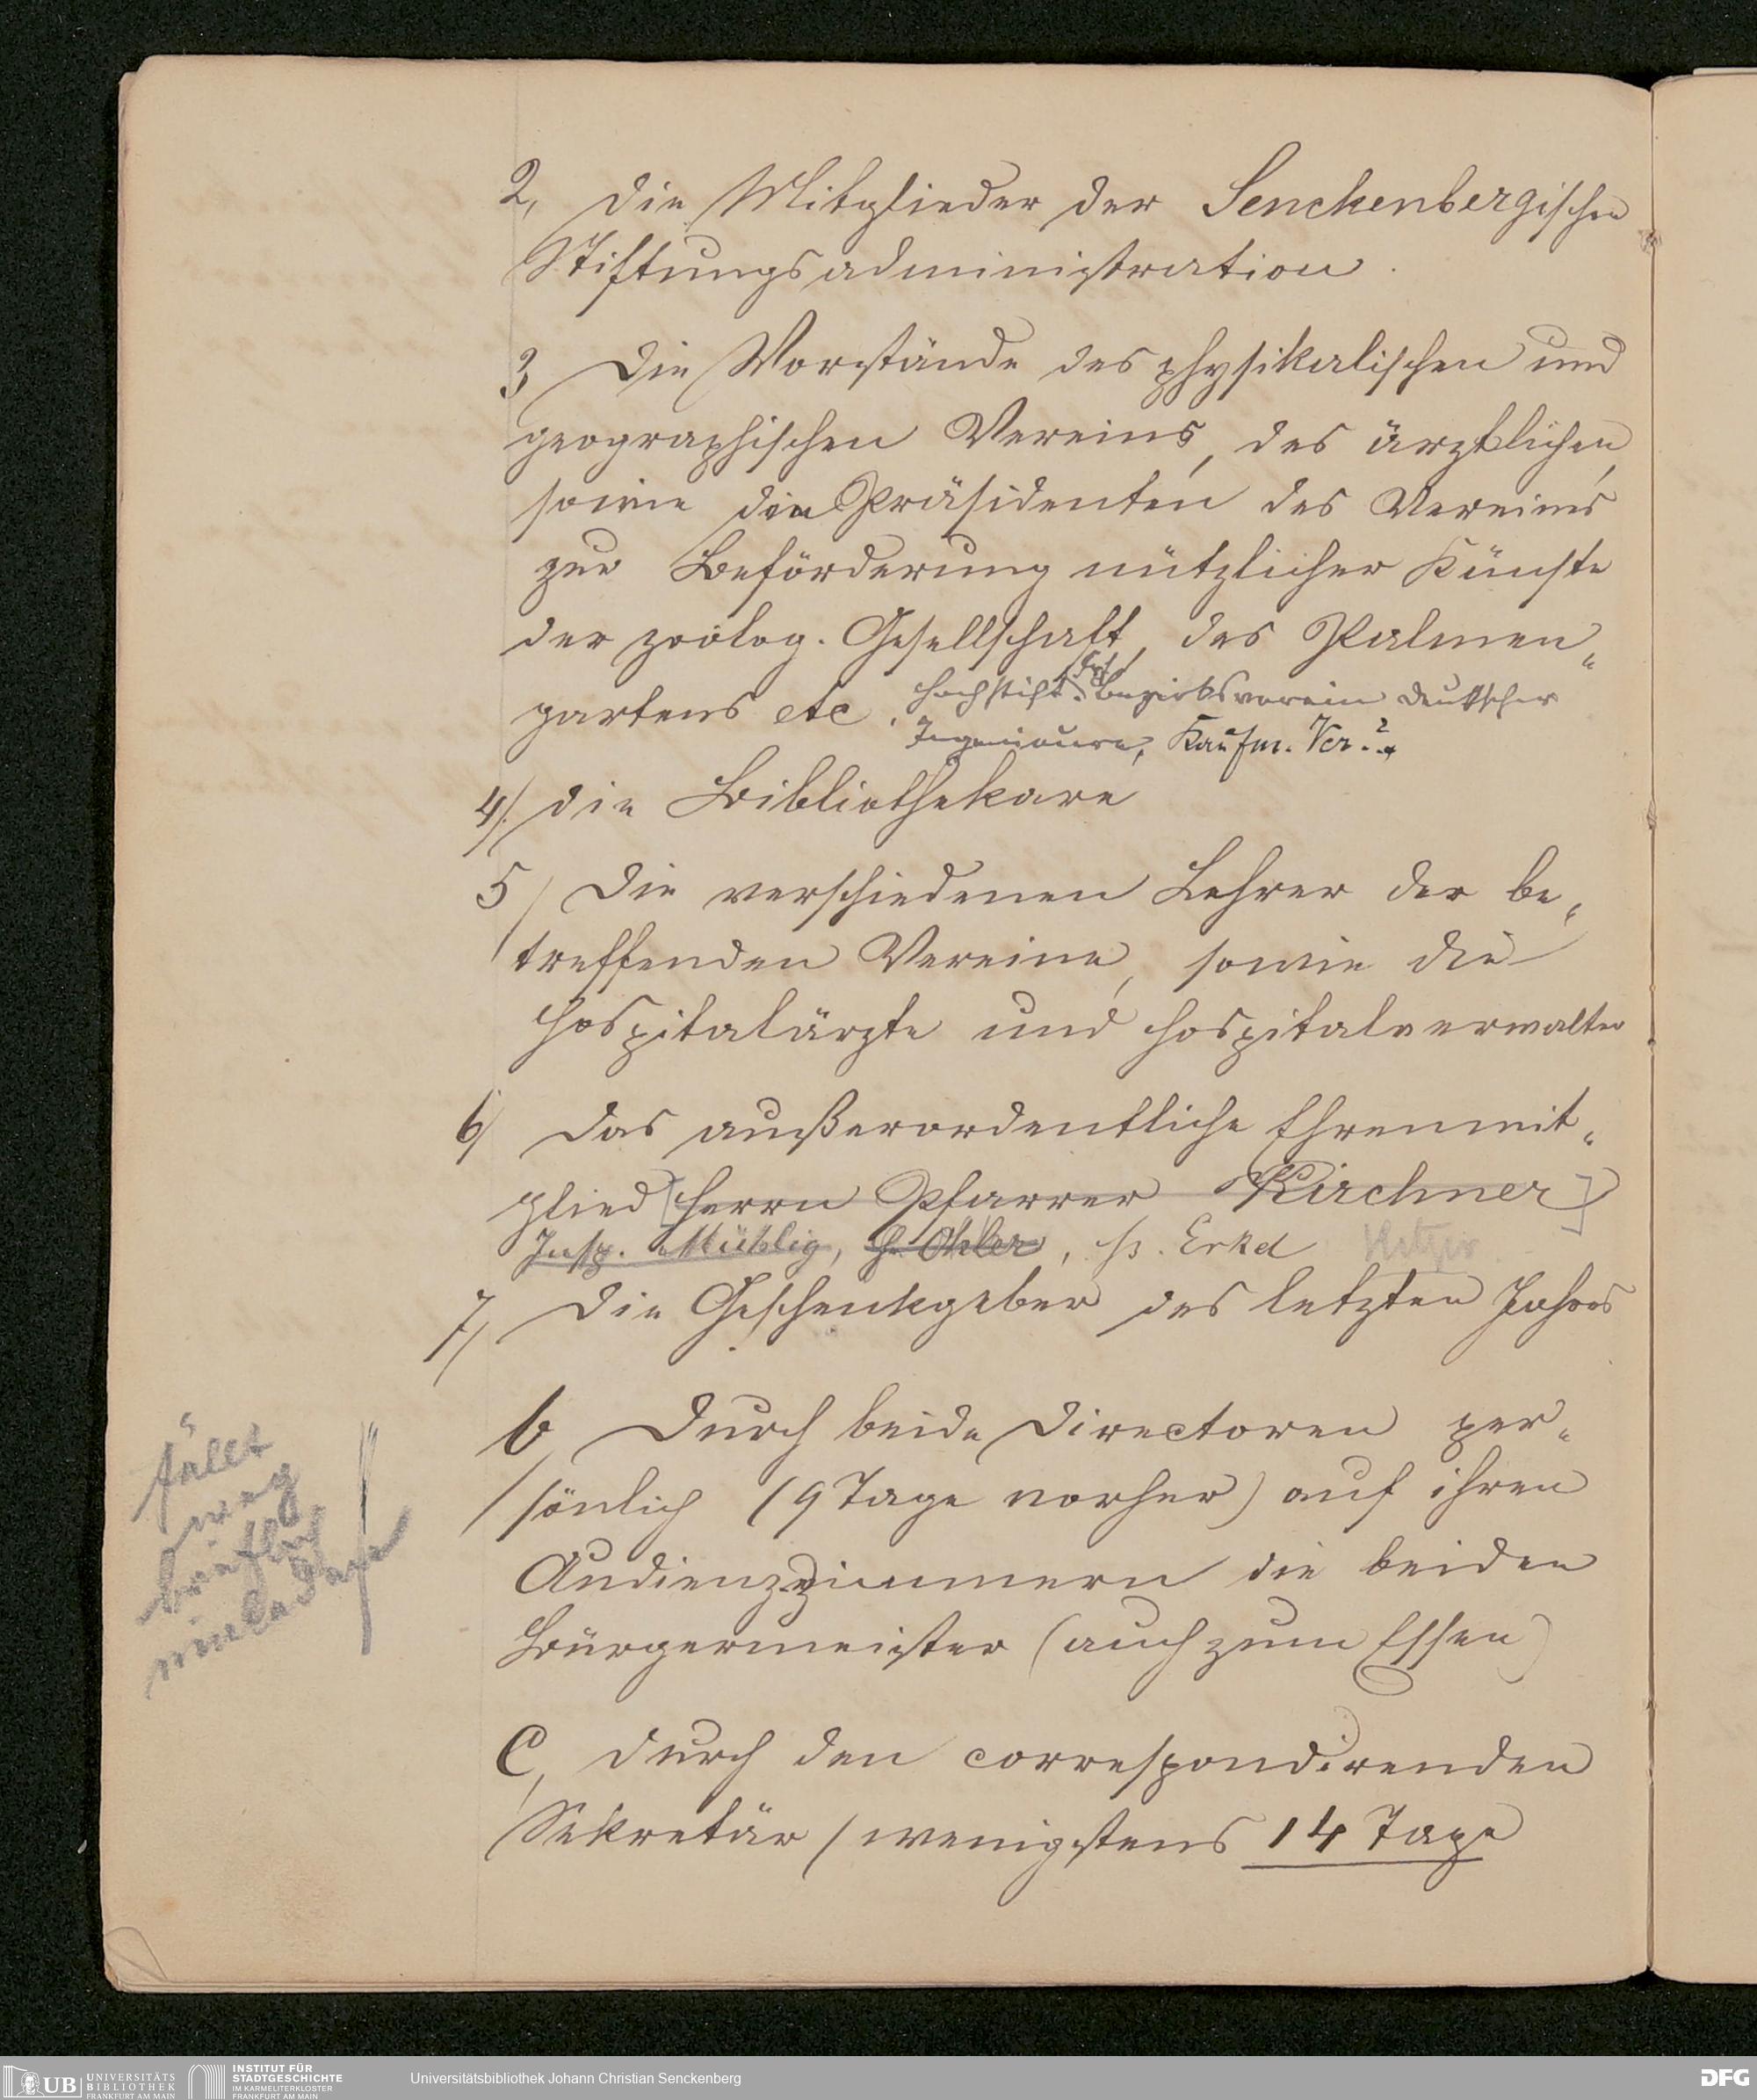 2, die Mitglieder der Senckenbergischen
Stiftungsadministration.
3, Die Vorstände des physikalischen und
geographischen Vereins, des ärztlichen,
sowie die Präsidenten des Vereins
zur Beförderung nützlicher Künste
der zoolog. Gesellschaft, des Palmen„
gartens etc. Hochstift, Bezirksverein deutscher
Ingenieure, Kaufm. Ver.?
4/. die Bibliothekare
5/ Die verschiedenen Lehrer der be„
treffenden Vereine, sowie die
Hospitalärzte und Hospitalverwalter
6/ Das außerordentliche Ehrenmit„
glied [Herrn Pfarrer Kirchner]
Insp. Mühlig, H. Ohler, H. Erkel
7/ Die Geschenkgeber des letzten Jahres
b, Durch beide Directoren per„
sönlich (9 Tage vorher) auf ihren
Audienzzimmern die beiden
Bürgermeister (auch zum Essen)
fällt
weg
brieflich
einladen
C, durch den correspondirenden
Sekretär / wenigstens 14 Tage
UB UNIVERSITÄTS
BIBLIOTHEK
FRANKFURT AM MAIN
INSTITUT FÜR
STADTGESCHICHTE
IM KARMELITERKLOSTER
FRANKFURT AM MAIN
Universitätsbibliothek Johann Christian Senckenberg
DFG